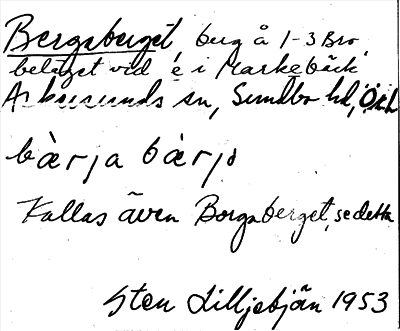 Bergaberget, berg å 1-3 Bro,
beläget vid e i Markebäck
Askersunds sn, Sundbo hd, Ör.
bàrja bàrjə
Kallas även Borgaberget, se detta
Sten Lilljebjän 1953